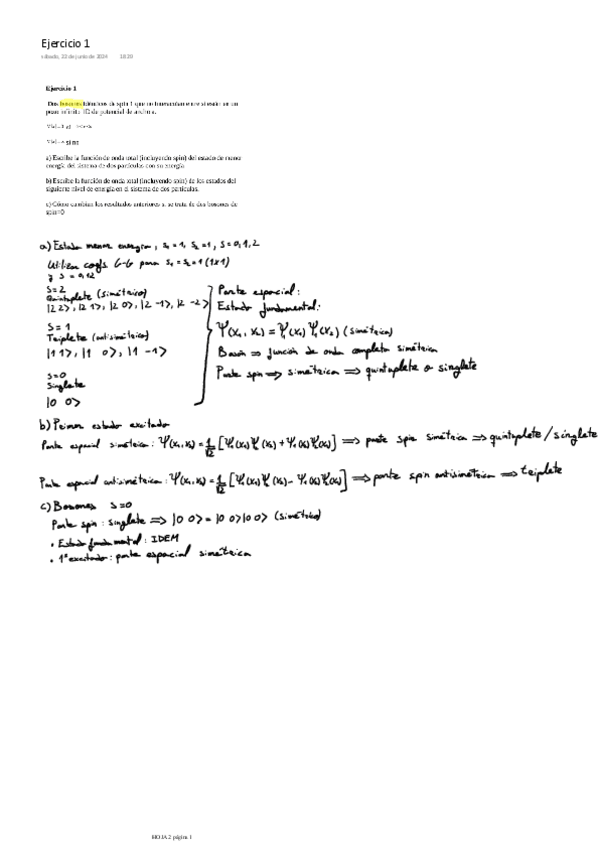 Ejercicio 1
sábado, 22 de junio de 2024 18:20
Ejercicio 1
Dos bosones idénticos de spin 1 que no interaccionan entre sí están en un
pozo infinito 1D de potencial de anchura a.
si no
a) Escribe la función de onda total (incluyendo spin) del estado de menor
energía del sistema de dos partículas con su energía
b) Escribe la función de onda total (incluyendo spin) de los estados del
siguiente nivel de energía en el sistema de dos partículas.
c) Cómo cambian los resultados anteriores si se trata de dos bosones de
spin=0
a) Estado menor energía, s₁ = 1, s₂ = 1, s = 0, 1, 2
Utilizar coefs C-G para s₁ = s₂ = 1 (1x1)
y s = 0,1,2
s = 2
Quintuplete (simétrico)
|2 2>, |2 1>, |2 0>, |2 -1>, |2 -2>
s = 1
Triplete (antisimétrico)
|1 1>, |1 0>, |1 -1>
s = 0
Singlete
|0 0>
Parte espacial:
Estado fundamental:
Ψ(x₁, x₂) = Ψ₁(x₁) Ψ₁(x₂) (simétrica)
Bosón ⇒ función de onda completa simétrica
Parte spin ⇒ simétrica ⇒ quintuplete o singlete
b) Primer estado excitado
Parte espacial simétrica: Ψ(x₁,x₂) = 1/√2 [
] ⇒ parte spin simétrica ⇒ quintuplete / singlete
Parte espacial antisimétrica: Ψ(x₁,x₂) = 1/√2 [
] ⇒ parte spin antisimétrica ⇒ triplete
c) Bosones s=0
Parte spin: singlete ⇒ |0 0> = |0 0>|0 0> (simétrico)
• Estado fundamental: IDEM
• 1º excitado: parte espacial simétrica
HOJA 2 página 1